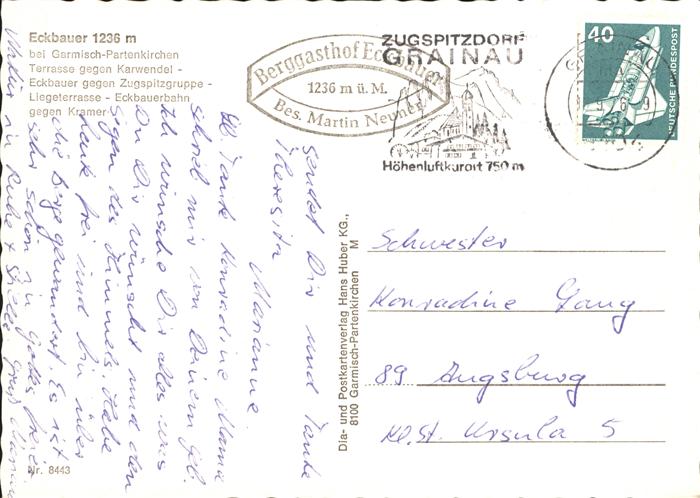 Eckbauer 1236 m
bei Garmisch-Partenkirchen
Terrasse gegen Karwendel -
Eckbauer gegen Zugspitzgruppe -
Liegeterrasse - Eckbauerbahn
gegen Kramer
Berggasthof Eckbauer
1236 m ü. M.
Bes. Martin Neuner
ZUGSPITZDORF
GRAINAU
Höhenluftkurort 750 m
40
DEUTSCHE BUNDESPOST
Lb. Tante Konradine Mama
schrieb mir von Deinem Geb.
Ich wünsche Dir alles was
Du Dir wünscht und den
Segen des Himmels. Habe
heute frei und bin über
die Berge gewandert. Es ist
sehr schön in Gottes freier
Natur in Ruhe + Stille
sendet Dir und Tante
Theresita
Marianne
Dia- und Postkartenverlag Hans Huber KG.,
8100 Garmisch-Partenkirchen M
Schwester
Konradine Gang
89 Augsburg
Kl. St. Ursula 5
Nr. 8443